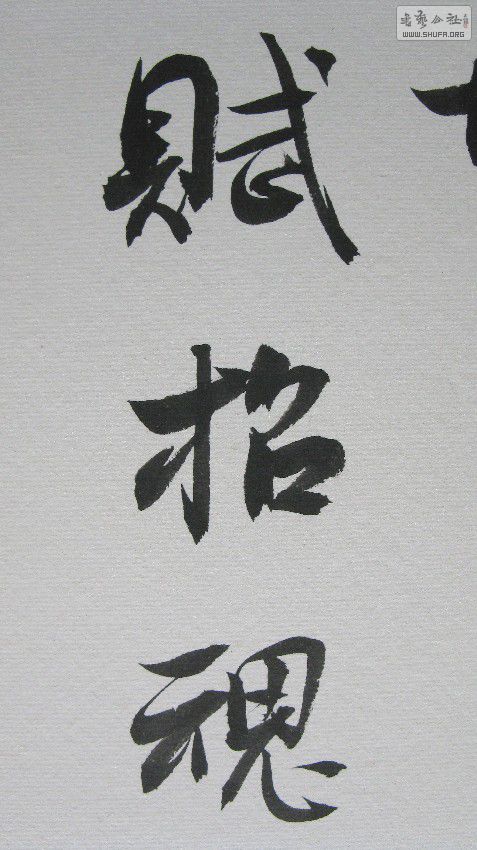 賦招魂
書藝公社
WWW.SHUFA.ORG